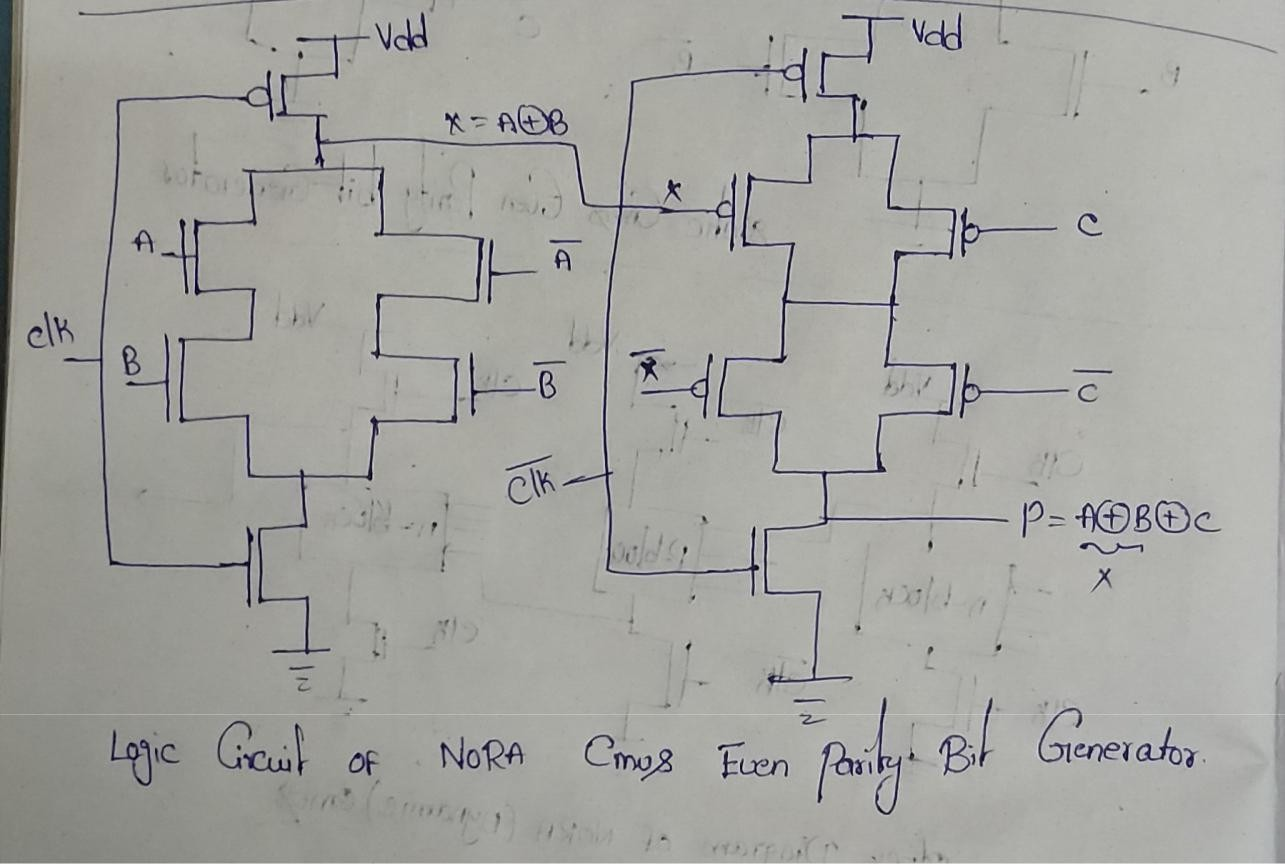 Vdd
Vdd
x = A⊕B
A
A̅
x
C
clk
B
B̅
x̅
C̅
c̅l̅k̅
P = A⊕B⊕C
x
Logic Circuit of NORA Cmos Even Parity Bit Generator.